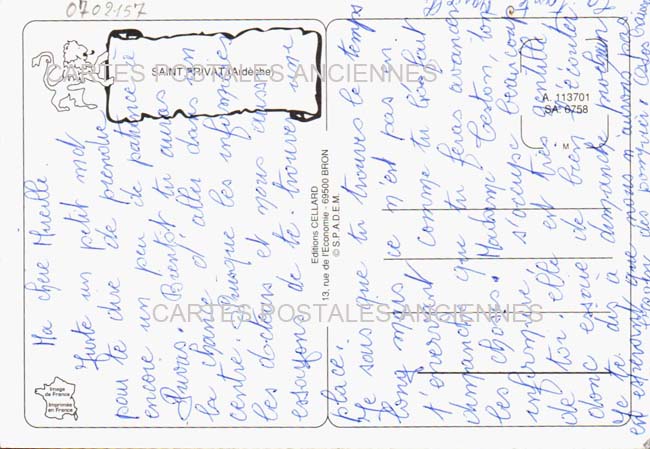 0702157
CARTES POSTALES ANCIENNES
SAINT PRIVAT (Ardèche)
A. 113701
SA. 6758
M
Editions CELLARD
13, rue de l'Economie - 69500 BRON
© S.P.A.D.E.M.
CARTES POSTALES ANCIENNES
Image
de France
Imprimée
en France
Ma chère Mireille
Juste un petit mot
pour te dire de prendre
encore un peu de patience à
Privas. Bientôt tu auras
la chance d'aller dans un
centre. Puisque les infirmières
les docteurs et nous aussi
essayons de te trouver une
place.
Je sais que tu trouves le temps
long mais ce n'est pas en
t'énervant comme tu l'as fait
dimanche que tu feras avancer
les choses. Madame Becton, ton
infirmière s'occupe beaucoup
de toi, elle est très gentille
donc essaie de bien l'écouter
Je te dis à dimanche prochain
en espérant que nous n'aurons pas